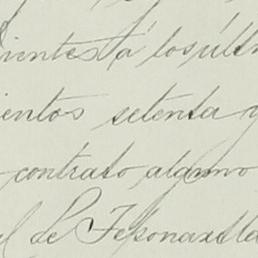 dientes á los últi
ientos setenta y
contrato alguno
l de Teponaxtla